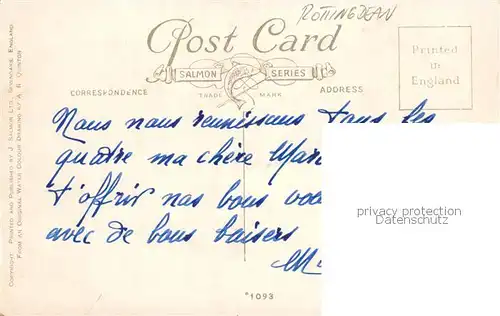 ROTTINGDEAN
Post Card
SALMON SERIES
TRADE MARK
CORRESPONDENCE
ADDRESS
Printed
in
England
Nous nous reunissons tous les
quatre ma chère Mar
t'offrir nos bons voe
avec de bons baisers
M
privacy protection
Datenschutz
*1093
COPYRIGHT. PRINTED AND PUBLISHED BY J. SALMON LTD., SEVENOAKS, ENGLAND.
FROM AN ORIGINAL WATER COLOUR DRAWING BY A. R. QUINTON